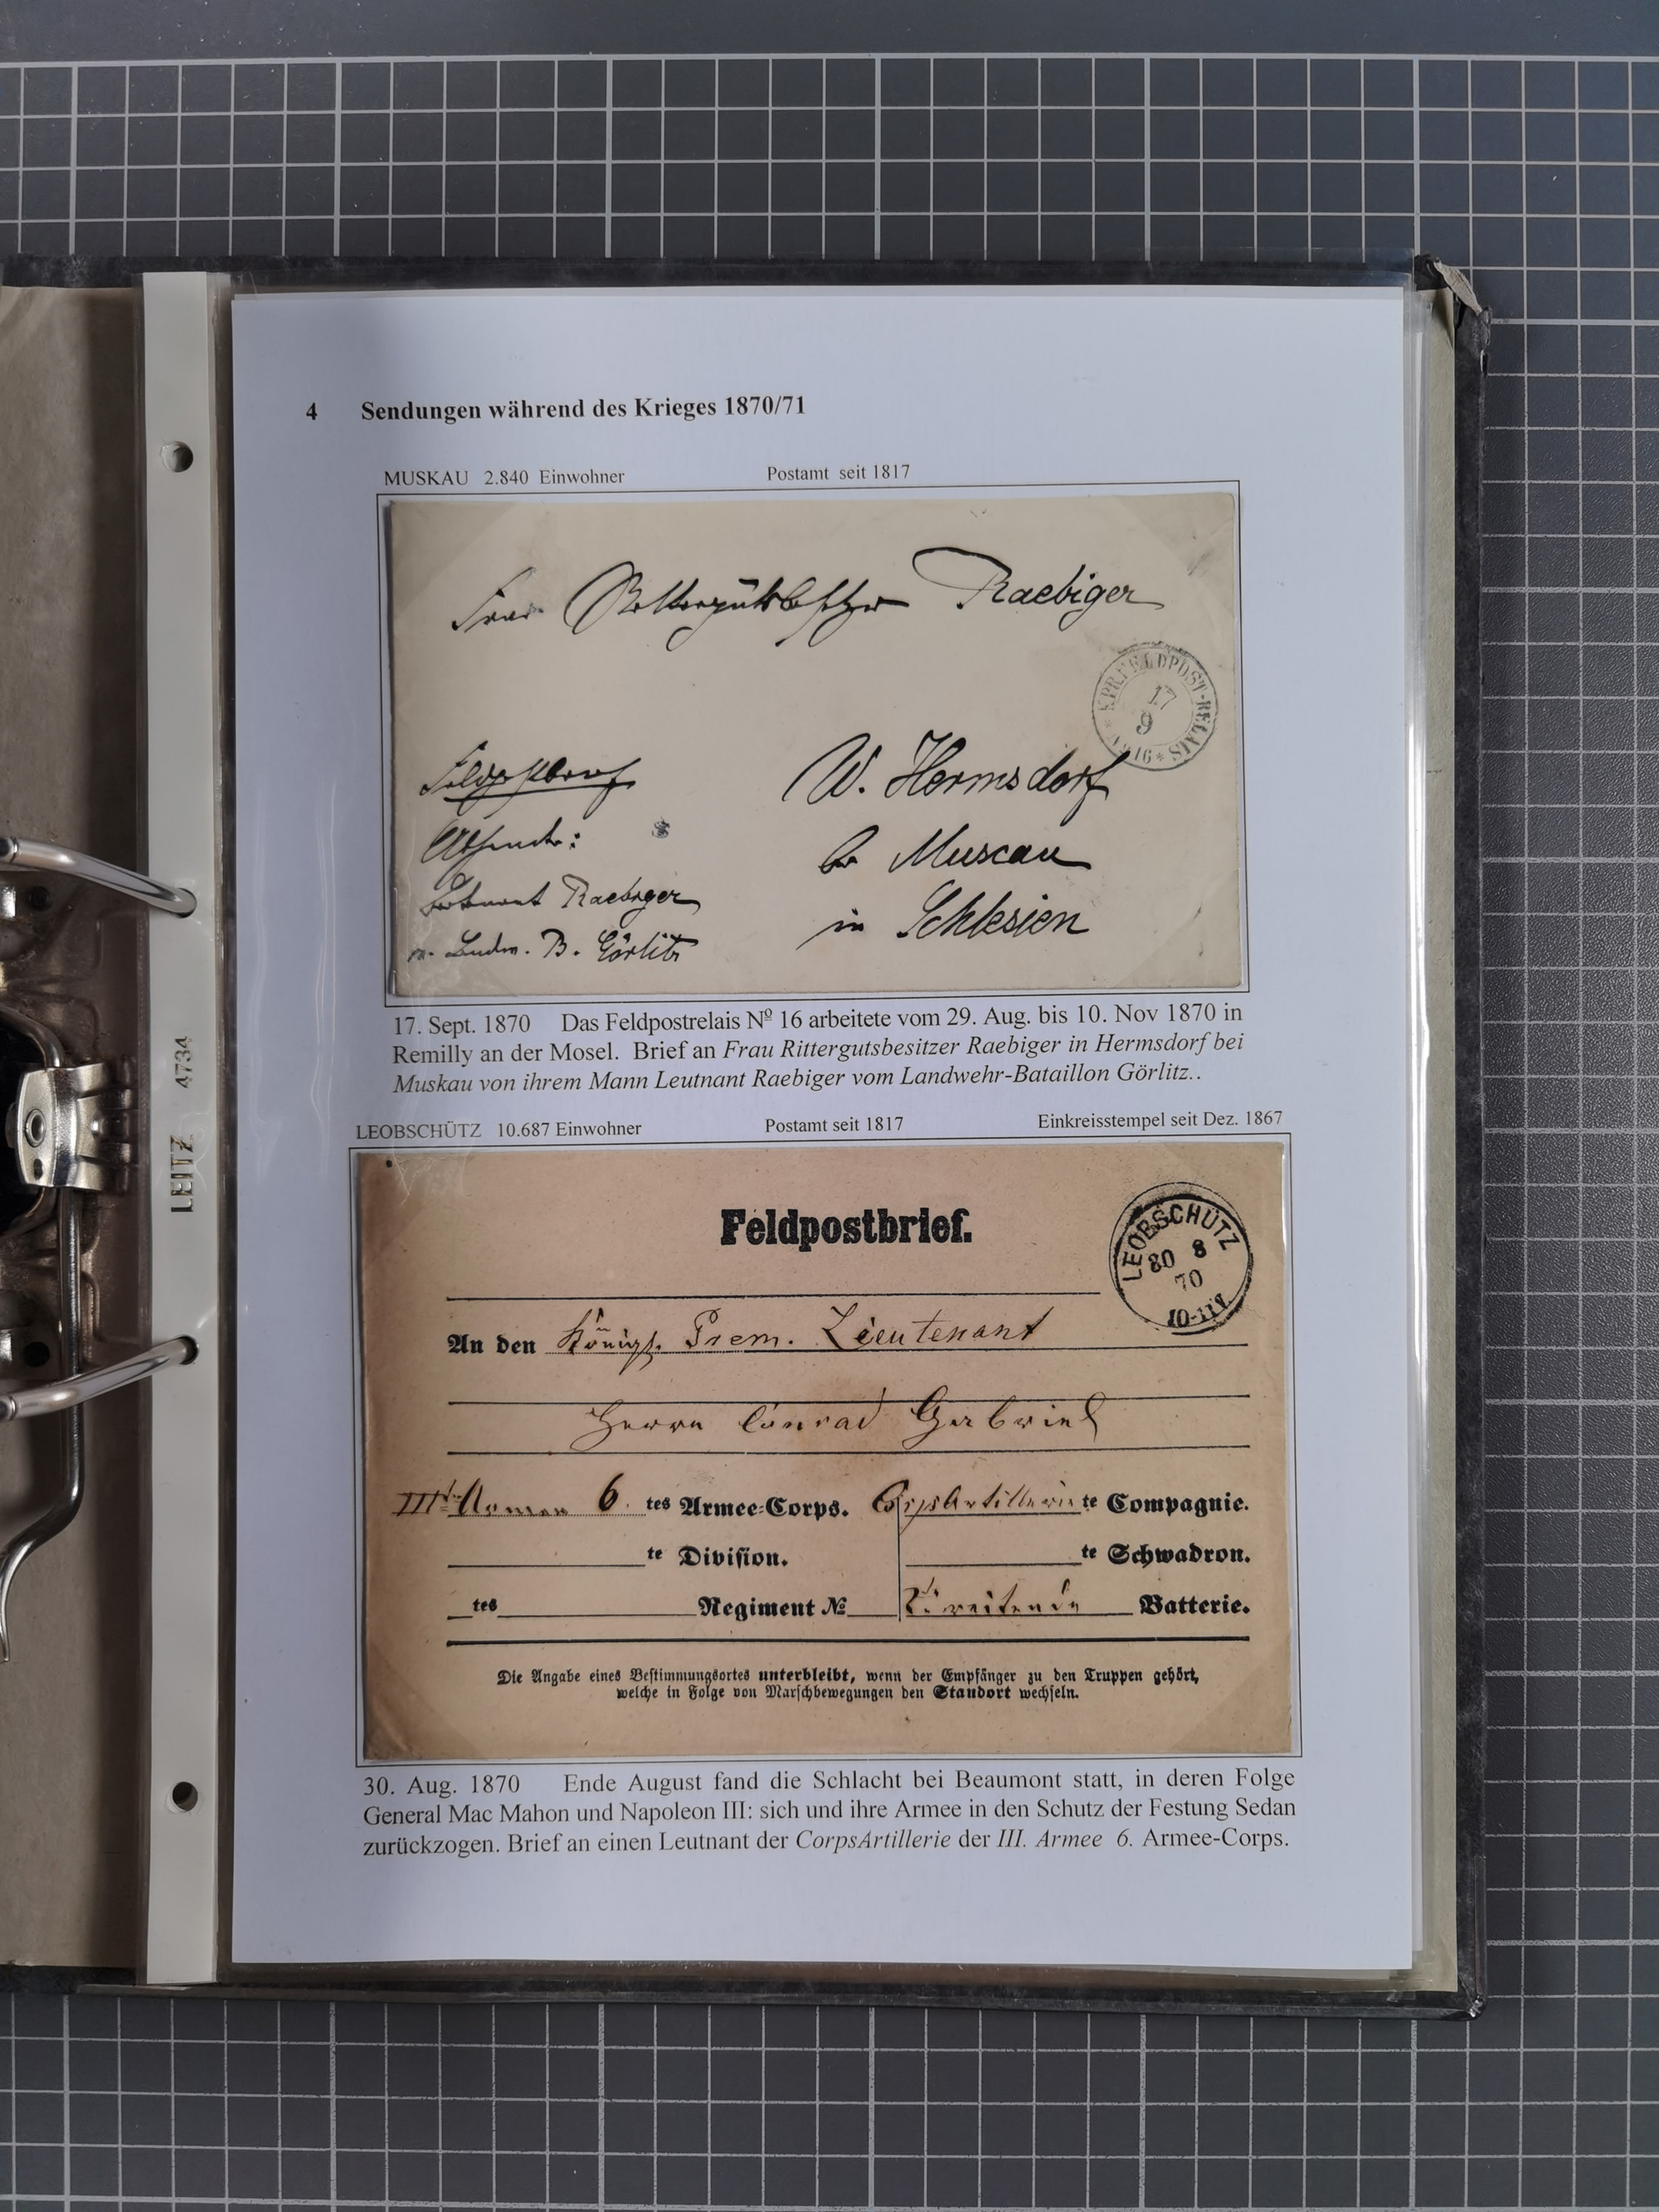 4 Sendungen während des Krieges 1870/71
MUSKAU 2.840 Einwohner Postamt seit 1817
Frau Rittergutsbesitzer Raebiger
K.PR.FELDPOST-RELAIS
17
9
No 16
Feldpostbrief
W. Hermsdorf
Absender:
b. Muscau
Leutnant Raebiger
in Schlesien
v. Landw. B. Görlitz
17. Sept. 1870 Das Feldpostrelais № 16 arbeitete vom 29. Aug. bis 10. Nov 1870 in
Remilly an der Mosel. Brief an Frau Rittergutsbesitzer Raebiger in Hermsdorf bei
Muskau von ihrem Mann Leutnant Raebiger vom Landwehr-Bataillon Görlitz..
LEOBSCHÜTZ 10.687 Einwohner Postamt seit 1817 Einkreisstempel seit Dez. 1867
Feldpostbrief.
LEOBSCHÜTZ
30 8
70
10-11V.
An den Königl. Prem. Lieutenant
Herrn Conrad Gabriel
IIIte Armee 6. tes Armee-Corps. CorpsArtillerie te Compagnie.
te Division. te Schwadron.
tes Regiment № 2. reitende Batterie.
Die Angabe eines Bestimmungsortes unterbleibt, wenn der Empfänger zu den Truppen gehört,
welche in Folge von Marschbewegungen den Standort wechseln.
30. Aug. 1870 Ende August fand die Schlacht bei Beaumont statt, in deren Folge
General Mac Mahon und Napoleon III: sich und ihre Armee in den Schutz der Festung Sedan
zurückzogen. Brief an einen Leutnant der CorpsArtillerie der III. Armee 6. Armee-Corps.
LEITZ 4734